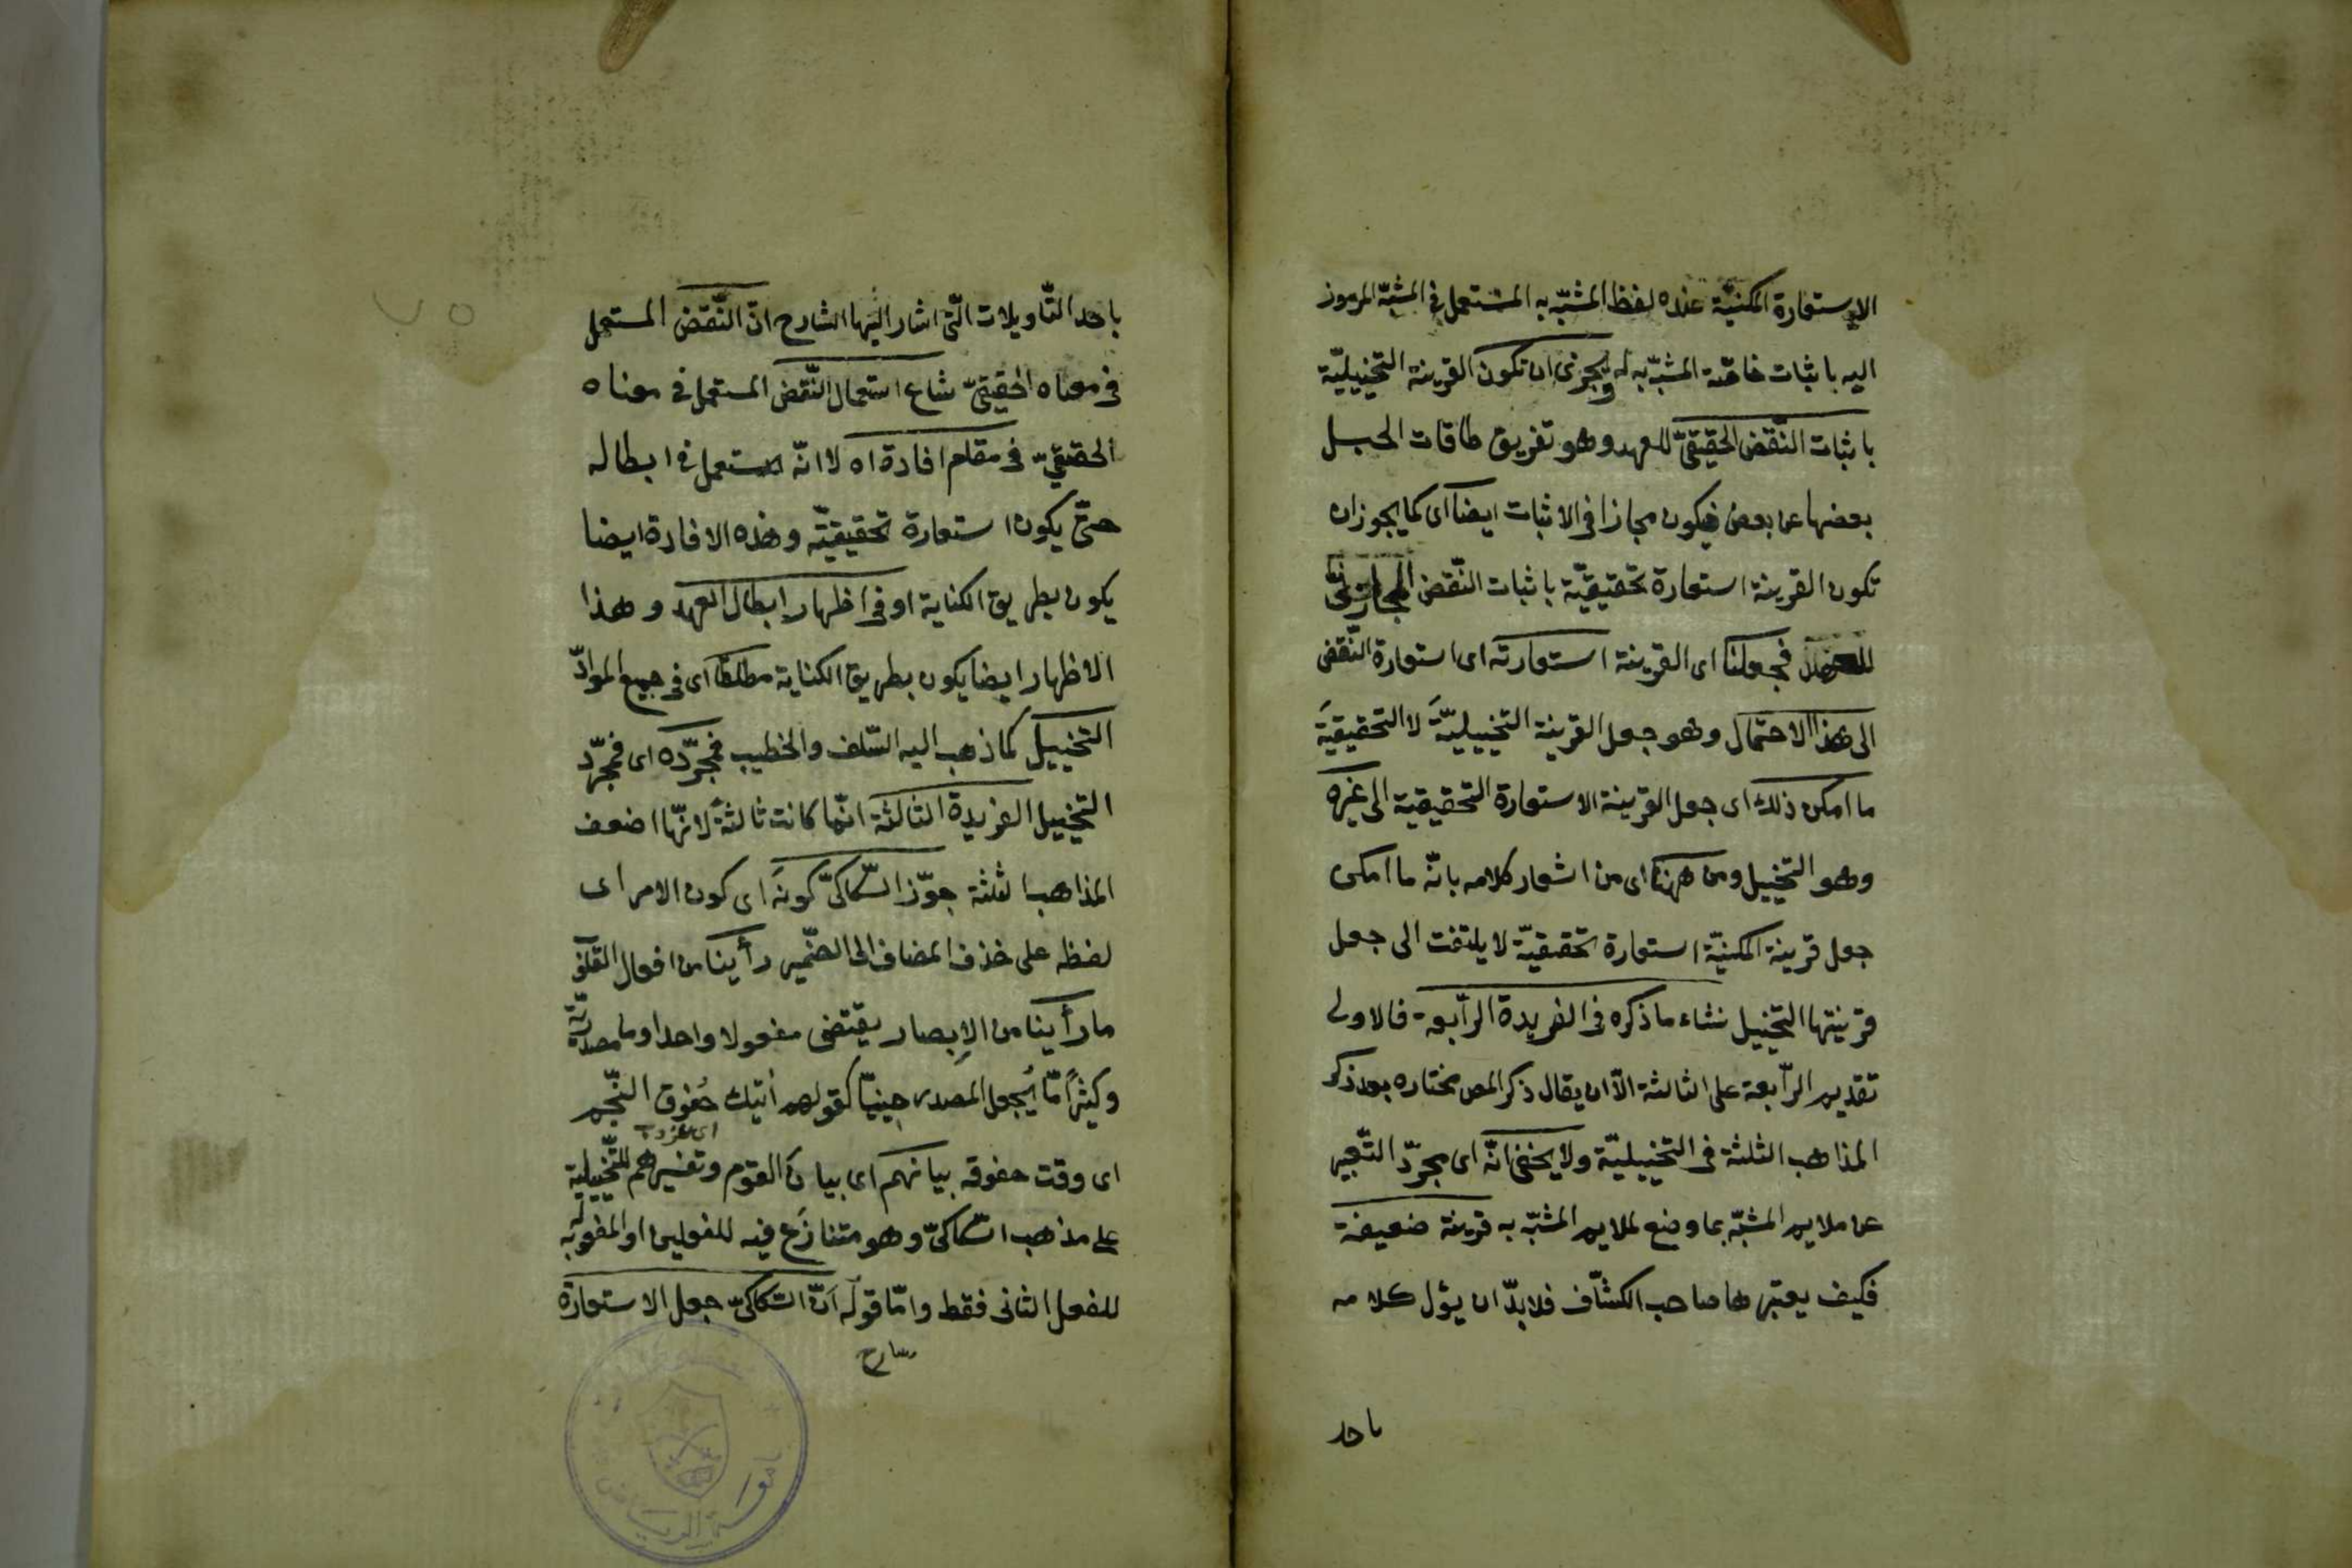 الاستعارة المكنيّة عنده لفظ المشبّه به المستعمل في المشبّه المرموز
اليه باثبات خاصّة المشبّه به له ويجوز ان تكون القرينة التخييليّة
باثبات النّقض الحقيقيّ للعهد وهو تفريق طاقات الحبل
بعضها عن بعض فيكون مجازا في الاثبات ايضا اى كما يجوز ان
تكون القرينة استعارة تحقيقيّة باثبات النّقض المجازىّ
فجعلنا اى القرينة استعارته اى استعارة النّقض
الى هذا الاحتمال وهو جعل القرينة التخييليّة لا التحقيقية
ما امكن ذلك اى جعل القرينة الاستعارة التحقيقية الى غيره
وهو التخييل ومن ههنا اى من اشعار كلامه بانّه ما امكن
جعل قرينة المكنيّة استعارة تحقيقيّة لا يلتفت الى جعل
قرينتها التخييل نشاء ما ذكره في الفريدة الرّابعة فالاولى
تقديم الرّابعة على الثالثة الّا ان يقال ذكر المص مختاره بعد ذكر
المذاهب الثلثة في التخييليّة ولا يخفى انّه اى مجرّد التّعبير
عن ملايم المشبّه بما وضع لملايم المشبّه به قرينة ضعيفة
فكيف يعتبرها صاحب الكشّاف فلا بدّ ان يؤل كلامه
باحد
باحد التّأويلات الّتى اشار اليها الشارح انّ النّقض المستعمل
في معناه الحقيقىّ شاع استعمال النّقض المستعمل في معناه
الحقيقيّ في مقام افادة اه لا انّه استعمل في ابطاله
حتّى يكون استعارة تحقيقيّة وهذه الافادة ايضا
يكون بطريق الكناية او في اظهار ابطال العهد وهذا
الاظهار ايضا يكون بطريق الكناية مطلقا اى في جميع الموادّ
التخييل كما ذهب اليه السّلف والخطيب فمجرّده اى فمجرّد
التخييل الفريدة الثالثة انّما كانت ثالثة لانّها اضعف
المذاهب الثلثة جوّز السّكاكىّ كونه اى كون الامر اى
لفظه على حذف المضاف الى الضّمير رأينا من افعال القلوب
ما رأينا من الإبصار يقتضى مفعولا واحدا وما مصدريّة
وكثيرًا مّا يُجعل المصدر حينيّا كقولهم أتيك خُفوق النّجم
اى غروبه
اى وقت خفوقه بيانهم اى بيان القوم وتفسيرهم للتّخييليّة
على مذهب السّكاكىّ وهو متنازَع فيه للفعلين او المفعول به
للفعل الثانى فقط وامّا قوله انّ السّكاكىّ جعل الاستعارة
شارح